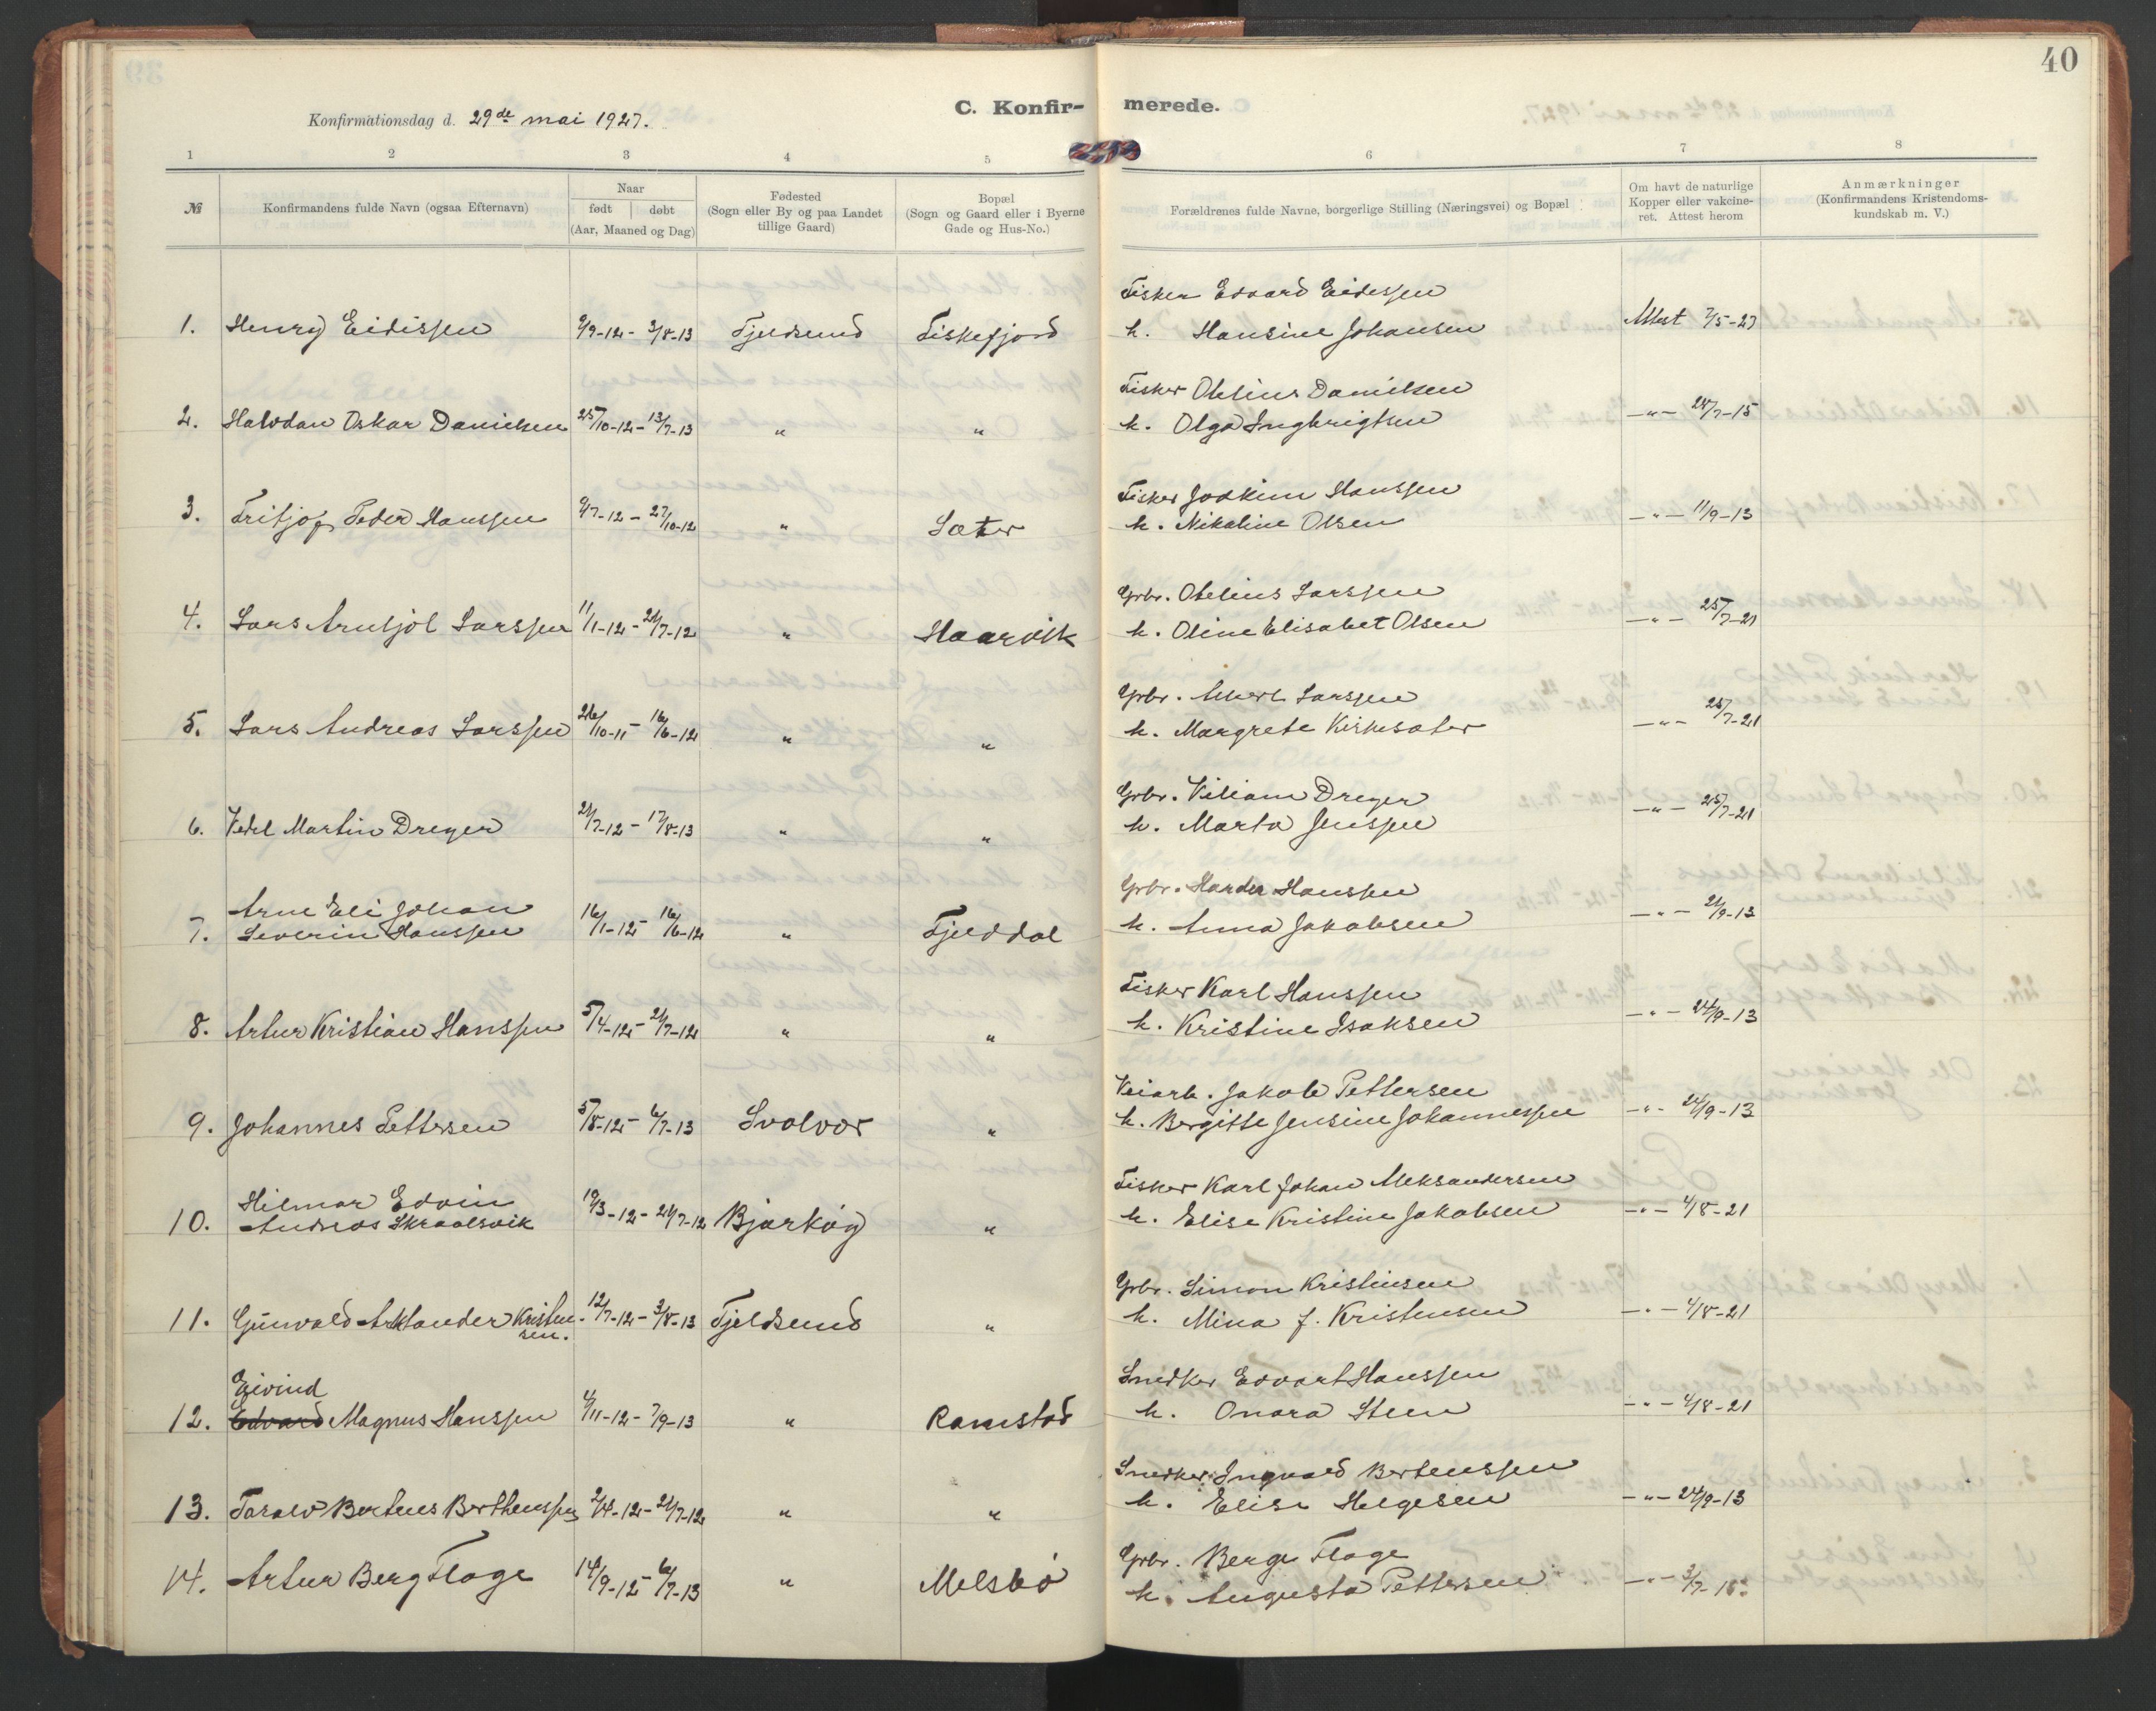 40
Konfirmationsdag d. 29de mai 1927.
C. Konfir-
merede.
1 2 3 4 5 6 7 8
№
Konfirmandens fulde Navn (ogsaa Efternavn)
Naar
født døbt
(Aar, Maaned og Dag)
Fødested
(Sogn eller By og paa Landet
tillige Gaard)
Bopæl
(Sogn og Gaard eller i Byerne
Gade og Hus-No.)
Forældrenes fulde Navne, borgerlige Stilling (Næringsvei) og Bopæl
Om havt de naturlige
Kopper eller vakcine-
ret. Attest herom
Anmærkninger
(Konfirmandens Kristendoms-
kundskab m. V.)
Fisker Edvard Eidessen
1. Henry Eidissen 9/9-12- 3/8-13 Fjeldsund Fiskefjord h. Hansine Johansen Attest 7/5-27
Fisker Otelius Danielsen
2. Halvdan Oskar Danielsen 25/10-12- 13/7-13 " " h. Olga Ingbrigtsen -"- 28/7-15
Fisker Joakim Hanssen
3. Fritjof Peder Hanssen 9/7-12- 27/10-12 " Sæter h. Nikoline Olsen -"- 11/9-13
Grbr. Otelius Larssen
4. Lars Arntjøl Larssen 11/1-12- 21/7-12 " Haarvik h. Oline Elisabet Olsen -"- 25/7-21
Grbr. Larssen
5. Lars Andreas Larssen 26/10-11- 16/6-12 " " h. Margrete Kirkesæter -"- 25/7-21
Grbr. Viliam Dreyer
6. Vedel Martin Dreyer 21/7-12- 17/8-13 " " h. Marta Jenssen -"- 25/7-21
Arne Eli Johan Grbr. Harder Hanssen
7. Severin Hanssen 16/1-12- 16/6-12 " Fjelddal h. Anna Jakobsen -"- 21/9-13
Fisker Karl Hanssen
8. Artur Kristian Hanssen 5/4-12- 21/7-12 " " h. Kristine Isaksen -"- 24/9-13
Veiarb. Jakob Pettersen
9. Johannes Pettersen 5/8-12- 6/7-13 Svolvær " h. Bergitte Jensine Johannessen -"- 24/9-13
Hilmar Edvin Fisker Karl Johan Aleksandersen
10. Andreas Skraalsvik 19/3-12- 21/7-12 Bjarkøy " h. Elise Kristine Jakobsen -"- 4/8-21
Grbr. Simon Kristensen
11. Gunvald Kristen- 12/7-12- 3/8-13 Fjeldsund " h. Mina f. Kristensen -"- 4/8-21
sen.
Eivind Snedker Edvart Hanssen
12. Edvard Magnus Hanssen 4/11-12- 7/9-13 " Ramstad h. Onara Steen -"- 4/8-21
Snedker Ingvald Bertenssen
13. Toralv Bertheus Berthenssen 2/4-12- 21/7-12 " " h. Elise Helgesen -"- 24/9-13
Grbr. Berge Flage
14. Artur Berg Flage 14/9-12- 6/7-13 " Melsbø h. Augusta Pettersen -"- 3/7-15